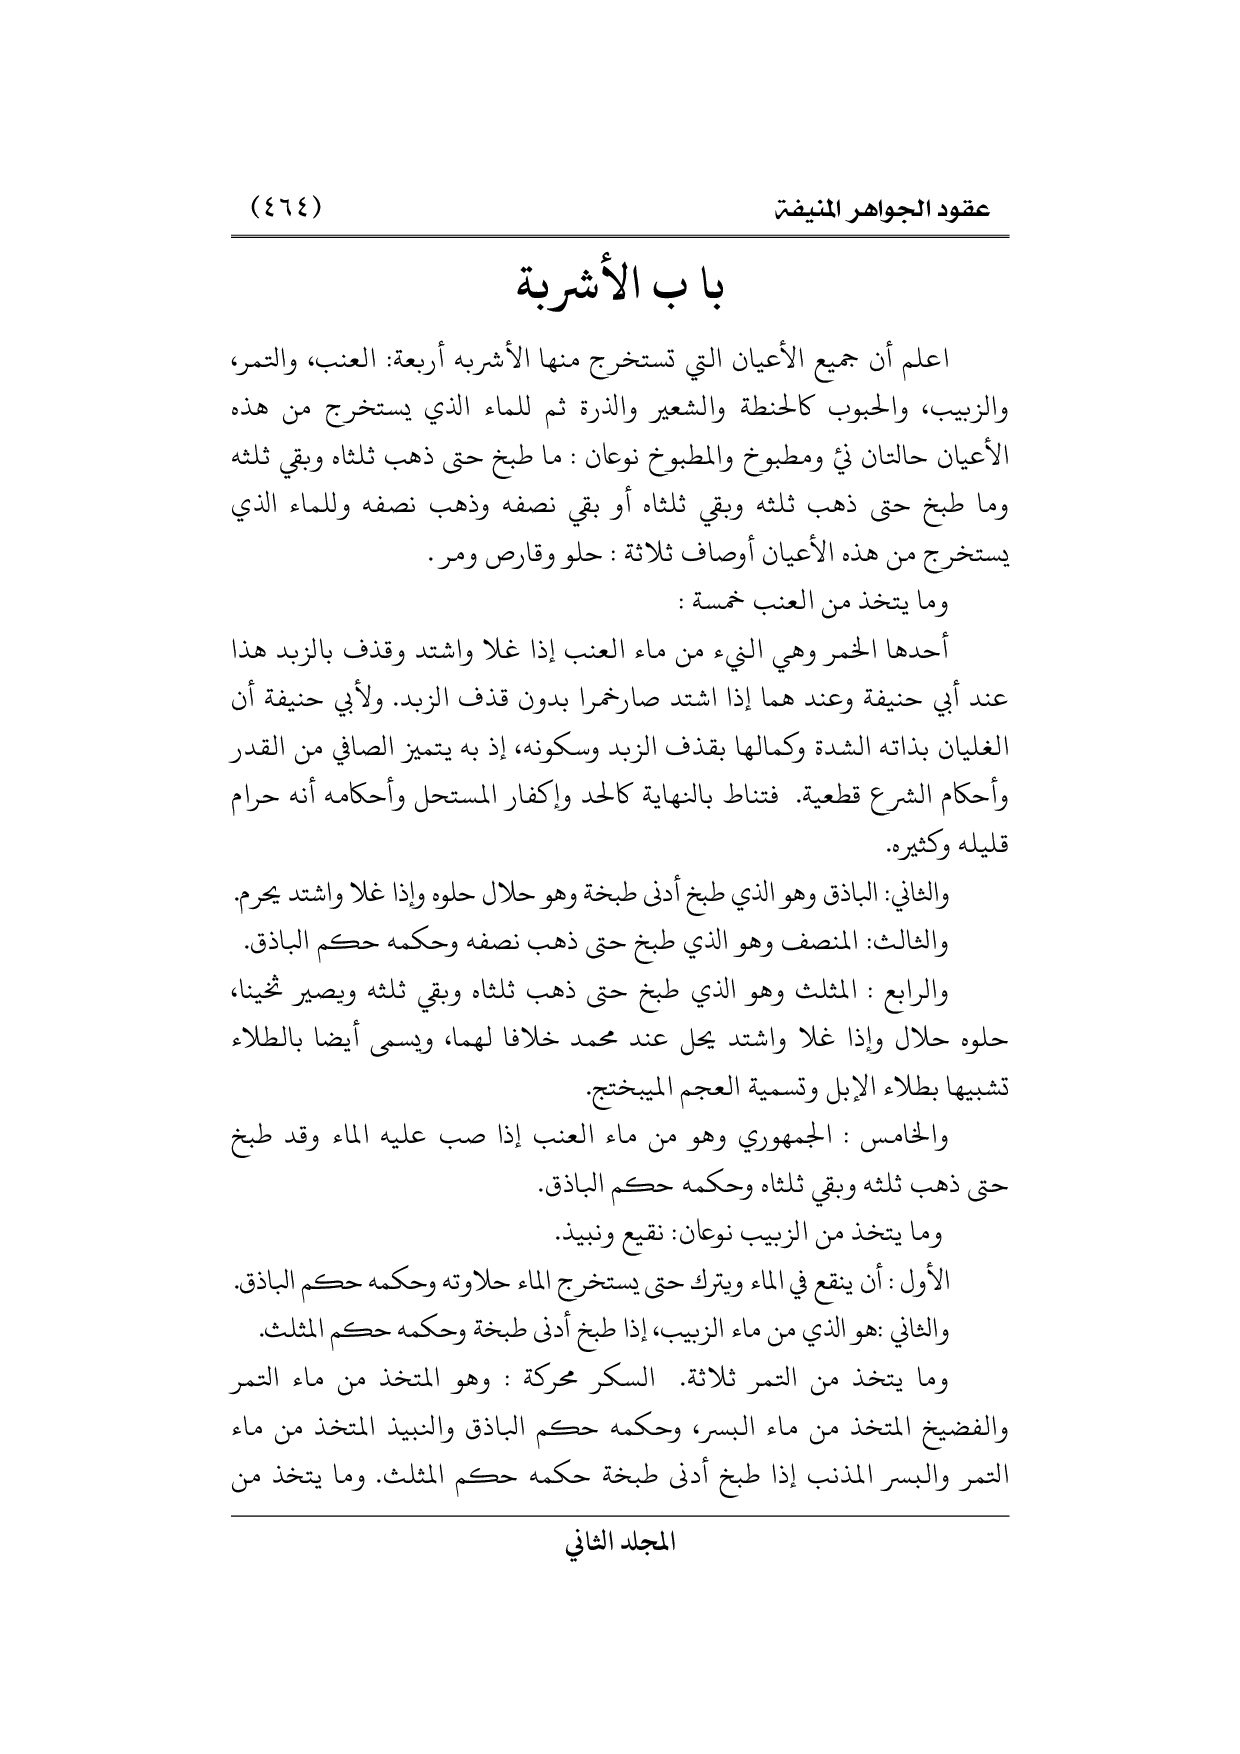 عقود الجواهر المنيفة (٤٦٤)
با ب الأشربة
اعلم أن جميع الأعيان التي تستخرج منها الأشربه أربعة: العنب، والتمر،
والزبيب، والحبوب كالحنطة والشعير والذرة ثم للماء الذي يستخرج من هذه
الأعيان حالتان نيْ ومطبوخ والمطبوخ نوعان : ما طبخ حتى ذهب ثلثاه وبقي ثلثه
وما طبخ حتى ذهب ثلثه وبقي ثلثاه أو بقي نصفه وذهب نصفه وللماء الذي
يستخرج من هذه الأعيان أوصاف ثلاثة : حلو وقارص ومر .
وما يتخذ من العنب خمسة :
أحدها الخمر وهي النيء من ماء العنب إذا غلا واشتد وقذف بالزبد هذا
عند أبي حنيفة وعند هما إذا اشتد صارخمرا بدون قذف الزبد. ولأبي حنيفة أن
الغليان بذاته الشدة وكمالها بقذف الزبد وسكونه، إذ به يتميز الصافي من القدر
وأحكام الشرع قطعية. فتناط بالنهاية كالحد وإكفار المستحل وأحكامه أنه حرام
قليله وكثيره.
والثاني: الباذق وهو الذي طبخ أدنى طبخة وهو حلال حلوه وإذا غلا واشتد يحرم.
والثالث: المنصف وهو الذي طبخ حتى ذهب نصفه وحكمه حكم الباذق.
والرابع : المثلث وهو الذي طبخ حتى ذهب ثلثاه وبقي ثلثه ويصير ثخينا،
حلوه حلال وإذا غلا واشتد يحل عند محمد خلافا لهما، ويسمى أيضا بالطلاء
تشبيها بطلاء الإبل وتسمية العجم الميبختج.
والخامس : الجمهوري وهو من ماء العنب إذا صب عليه الماء وقد طبخ
حتى ذهب ثلثه وبقي ثلثاه وحكمه حكم الباذق.
وما يتخذ من الزبيب نوعان: نقيع ونبيذ.
الأول : أن ينقع في الماء ويترك حتى يستخرج الماء حلاوته وحكمه حكم الباذق.
والثاني :هو الذي من ماء الزبيب، إذا طبخ أدنى طبخة وحكمه حكم المثلث.
وما يتخذ من التمر ثلاثة. السكر محركة : وهو المتخذ من ماء التمر
والفضيخ المتخذ من ماء البسر، وحكمه حكم الباذق والنبيذ المتخذ من ماء
التمر والبسر المذنب إذا طبخ أدنى طبخة حكمه حكم المثلث. وما يتخذ من
المجلد الثاني